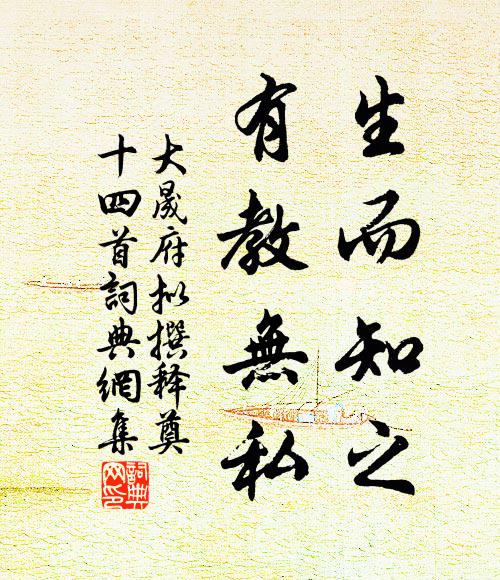 生而知之
有教無私
大晟府拟撰释奠
十四首詞典網集
詞典
网印